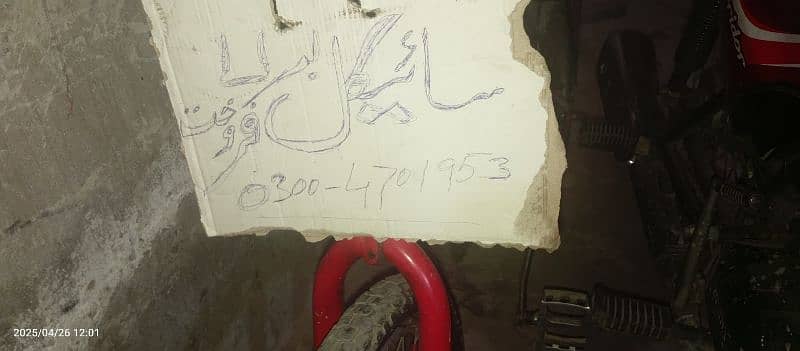 سائیکل برائے
فروخت
0300-4701953
2025/04/26 12:01